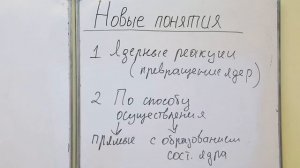 Новые понятия
1 Ядерные реакции
(превращение ядер)
2 По способу
осуществления
прямые с образованием
сост. ядра